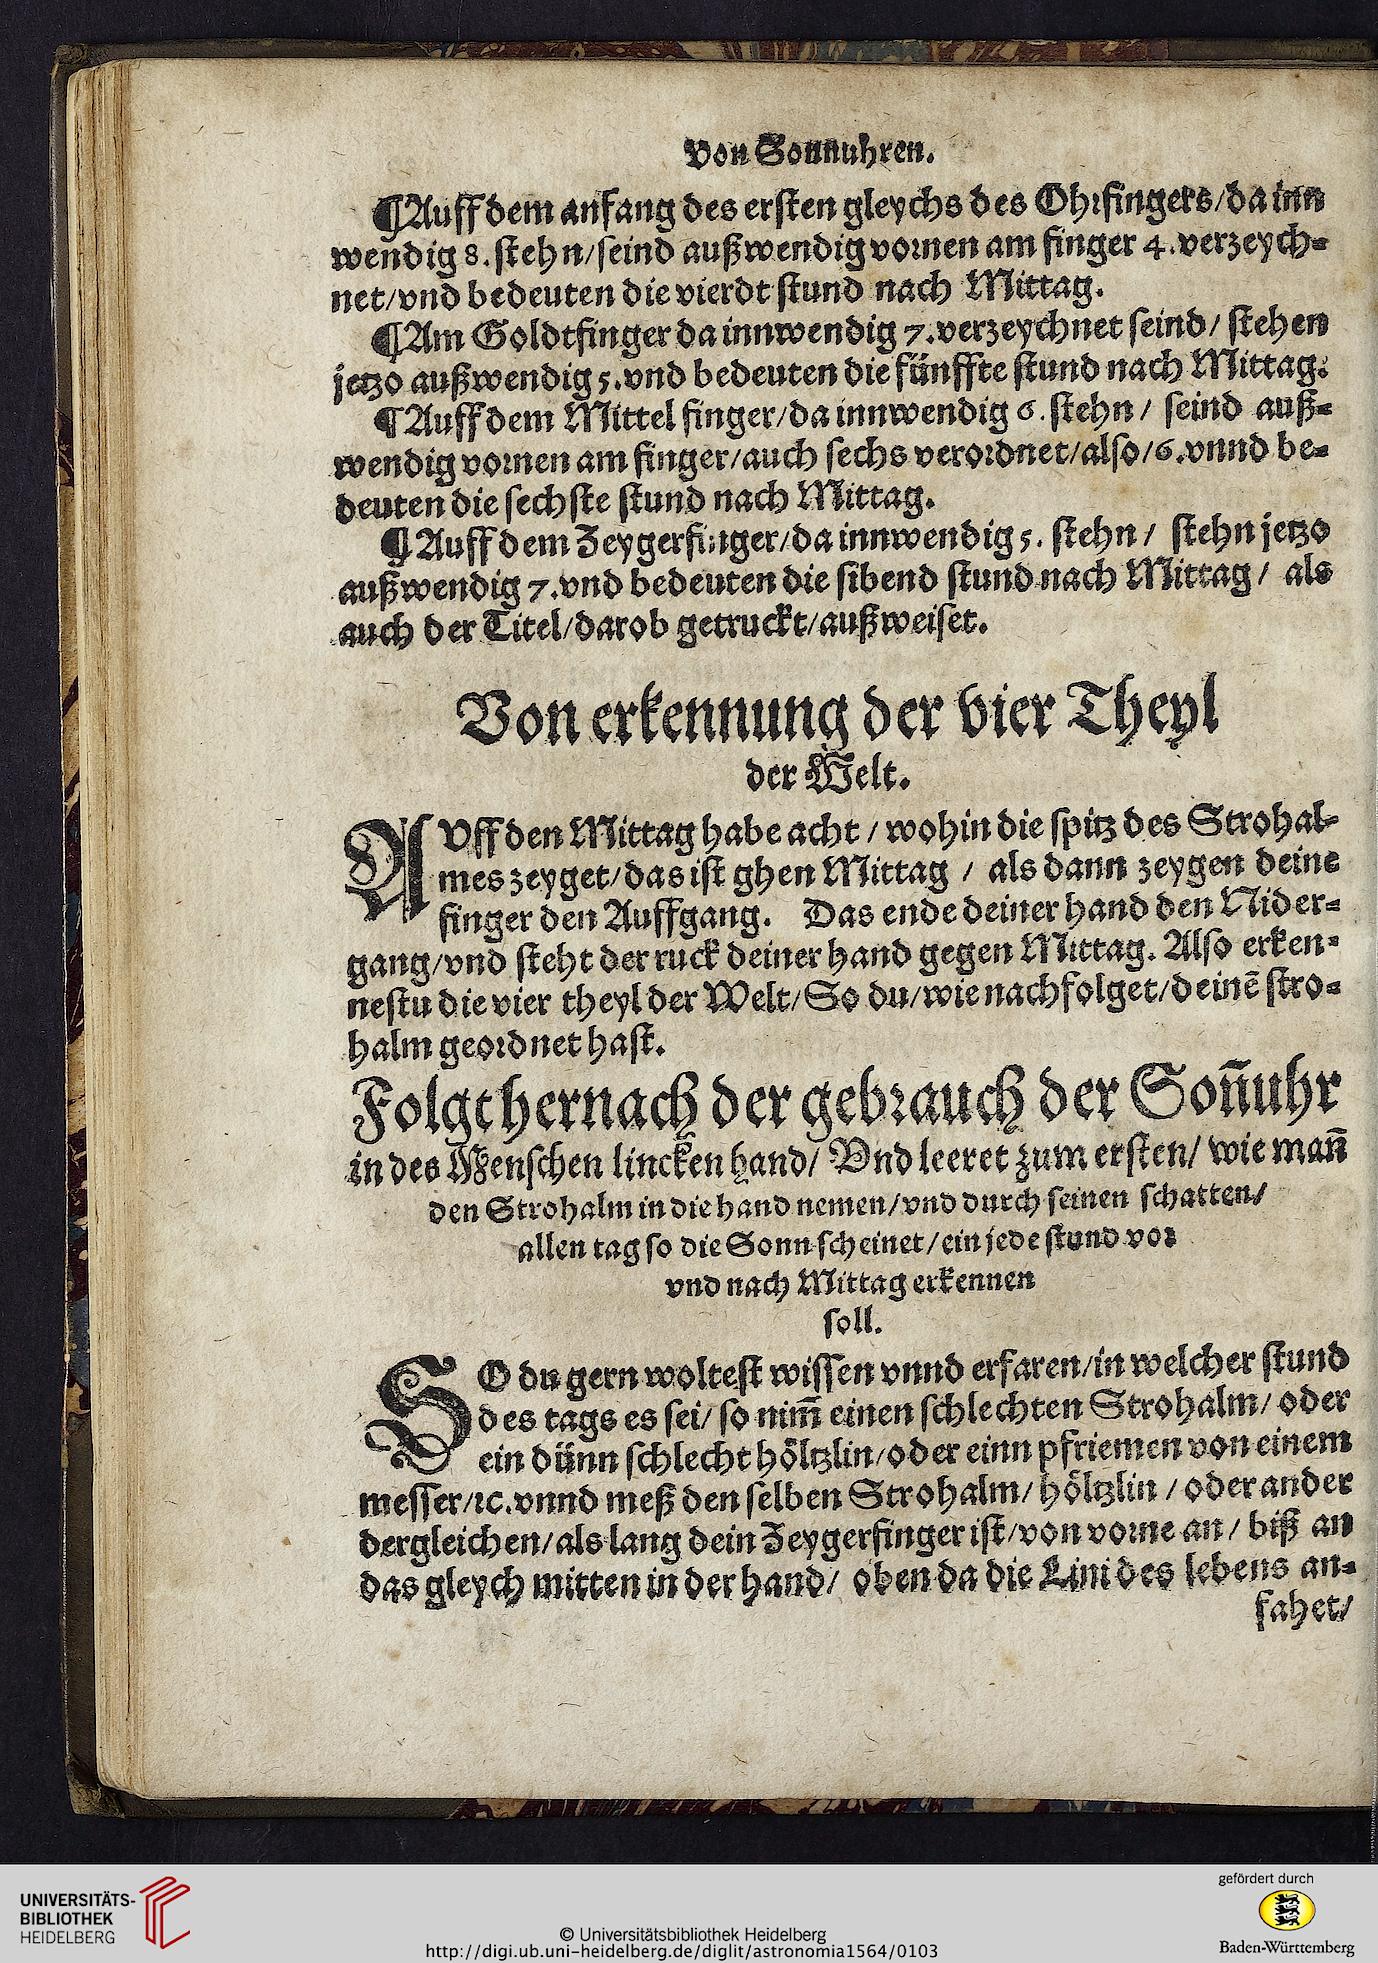 Von Sonnuhren.
¶Auff dem anfang des ersten gleychs des Ohrfingers/da inn
wendig 8. stehn/seind außwendig vornen am finger 4. verzeych-
net/vnd bedeuten die vierdt stund nach Mittag.
¶Am Goldtfinger da innwendig 7. verzeychnet seind/ stehen
jetzo außwendig 5. vnd bedeuten die fünffte stund nach Mittag.
¶Auff dem Mittel finger/da innwendig 6. stehn/ seind auß-
wendig vornen am finger/auch sechs verordnet/also/6. vnnd be-
deuten die sechste stund nach Mittag.
¶Auff dem Zeygerfinger/da innwendig 5. stehn/ stehn jetzo
außwendig 7. vnd bedeuten die sibend stund nach Mittag/ als
auch der Titel/darob getruckt/außweiset.
Von erkennung der vier Theyl
der Welt.
AVff den Mittag habe acht/ wohin die spitz des Strohal-
mes zeyget/das ist ghen Mittag/ als dann zeygen deine
finger den Auffgang. Das ende deiner hand den Nider-
gang/vnd steht der ruck deiner hand gegen Mittag. Also erken-
nestu die vier theyl der Welt/So du/wie nachfolget/deinē stro-
halm geordnet hast.
Folgt hernach der gebrauch der Soñuhr
in des Menschen lincken hand/ Vnd leeret zum ersten/ wie mañ
den Strohalm in die hand nemen/vnd durch seinen schatten/
allen tag so die Sonn scheinet/ein jede stund vor
vnd nach Mittag erkennen
soll.
SO du gern woltest wissen vnnd erfaren/in welcher stund
des tags es sei/ so nim̃ einen schlechten Strohalm/ oder
ein dünn schlecht höltzlin/oder einn pfriemen von einem
messer/ꝛc. vnnd meß den selben Strohalm/ höltzlin/ oder ander
dergleichen/als lang dein Zeygerfinger ist/von vorne an/ biß an
das gleych mitten in der hand/ oben da die Lini des lebens an-
fahet/
UNIVERSITÄTS-
BIBLIOTHEK
HEIDELBERG
© Universitätsbibliothek Heidelberg
http://digi.ub.uni-heidelberg.de/diglit/astronomia1564/0103
gefördert durch
Baden-Württemberg